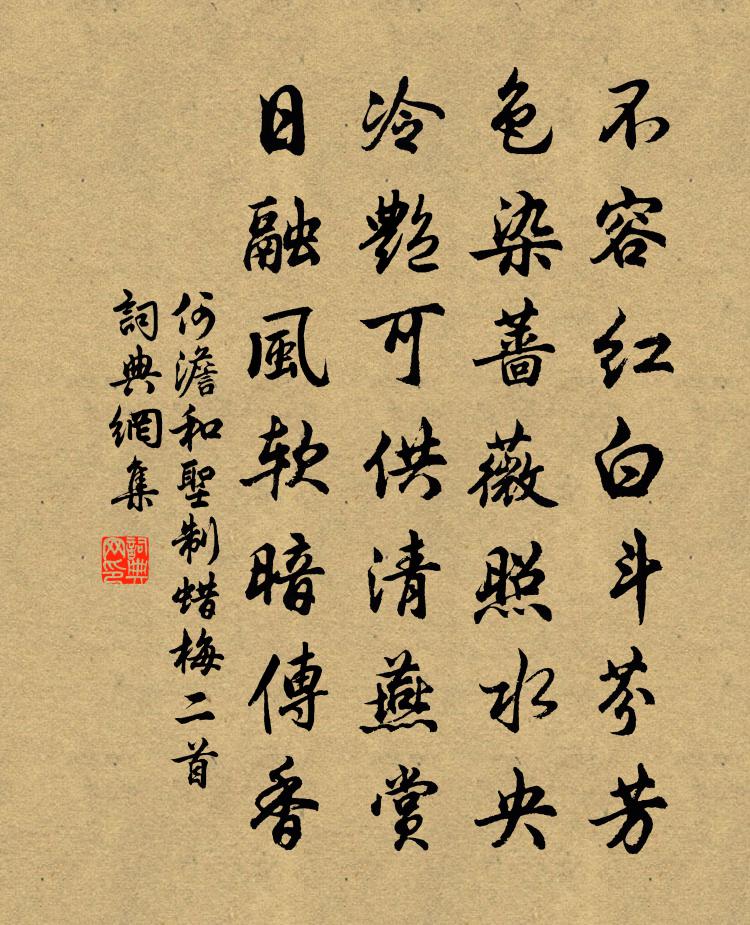 不容红白斗芬芳
色染蔷薇照水央
冷艷可供清燕赏
日融風软暗傳香
何澹和聖制蜡梅二首
詞典網集
詞典网印